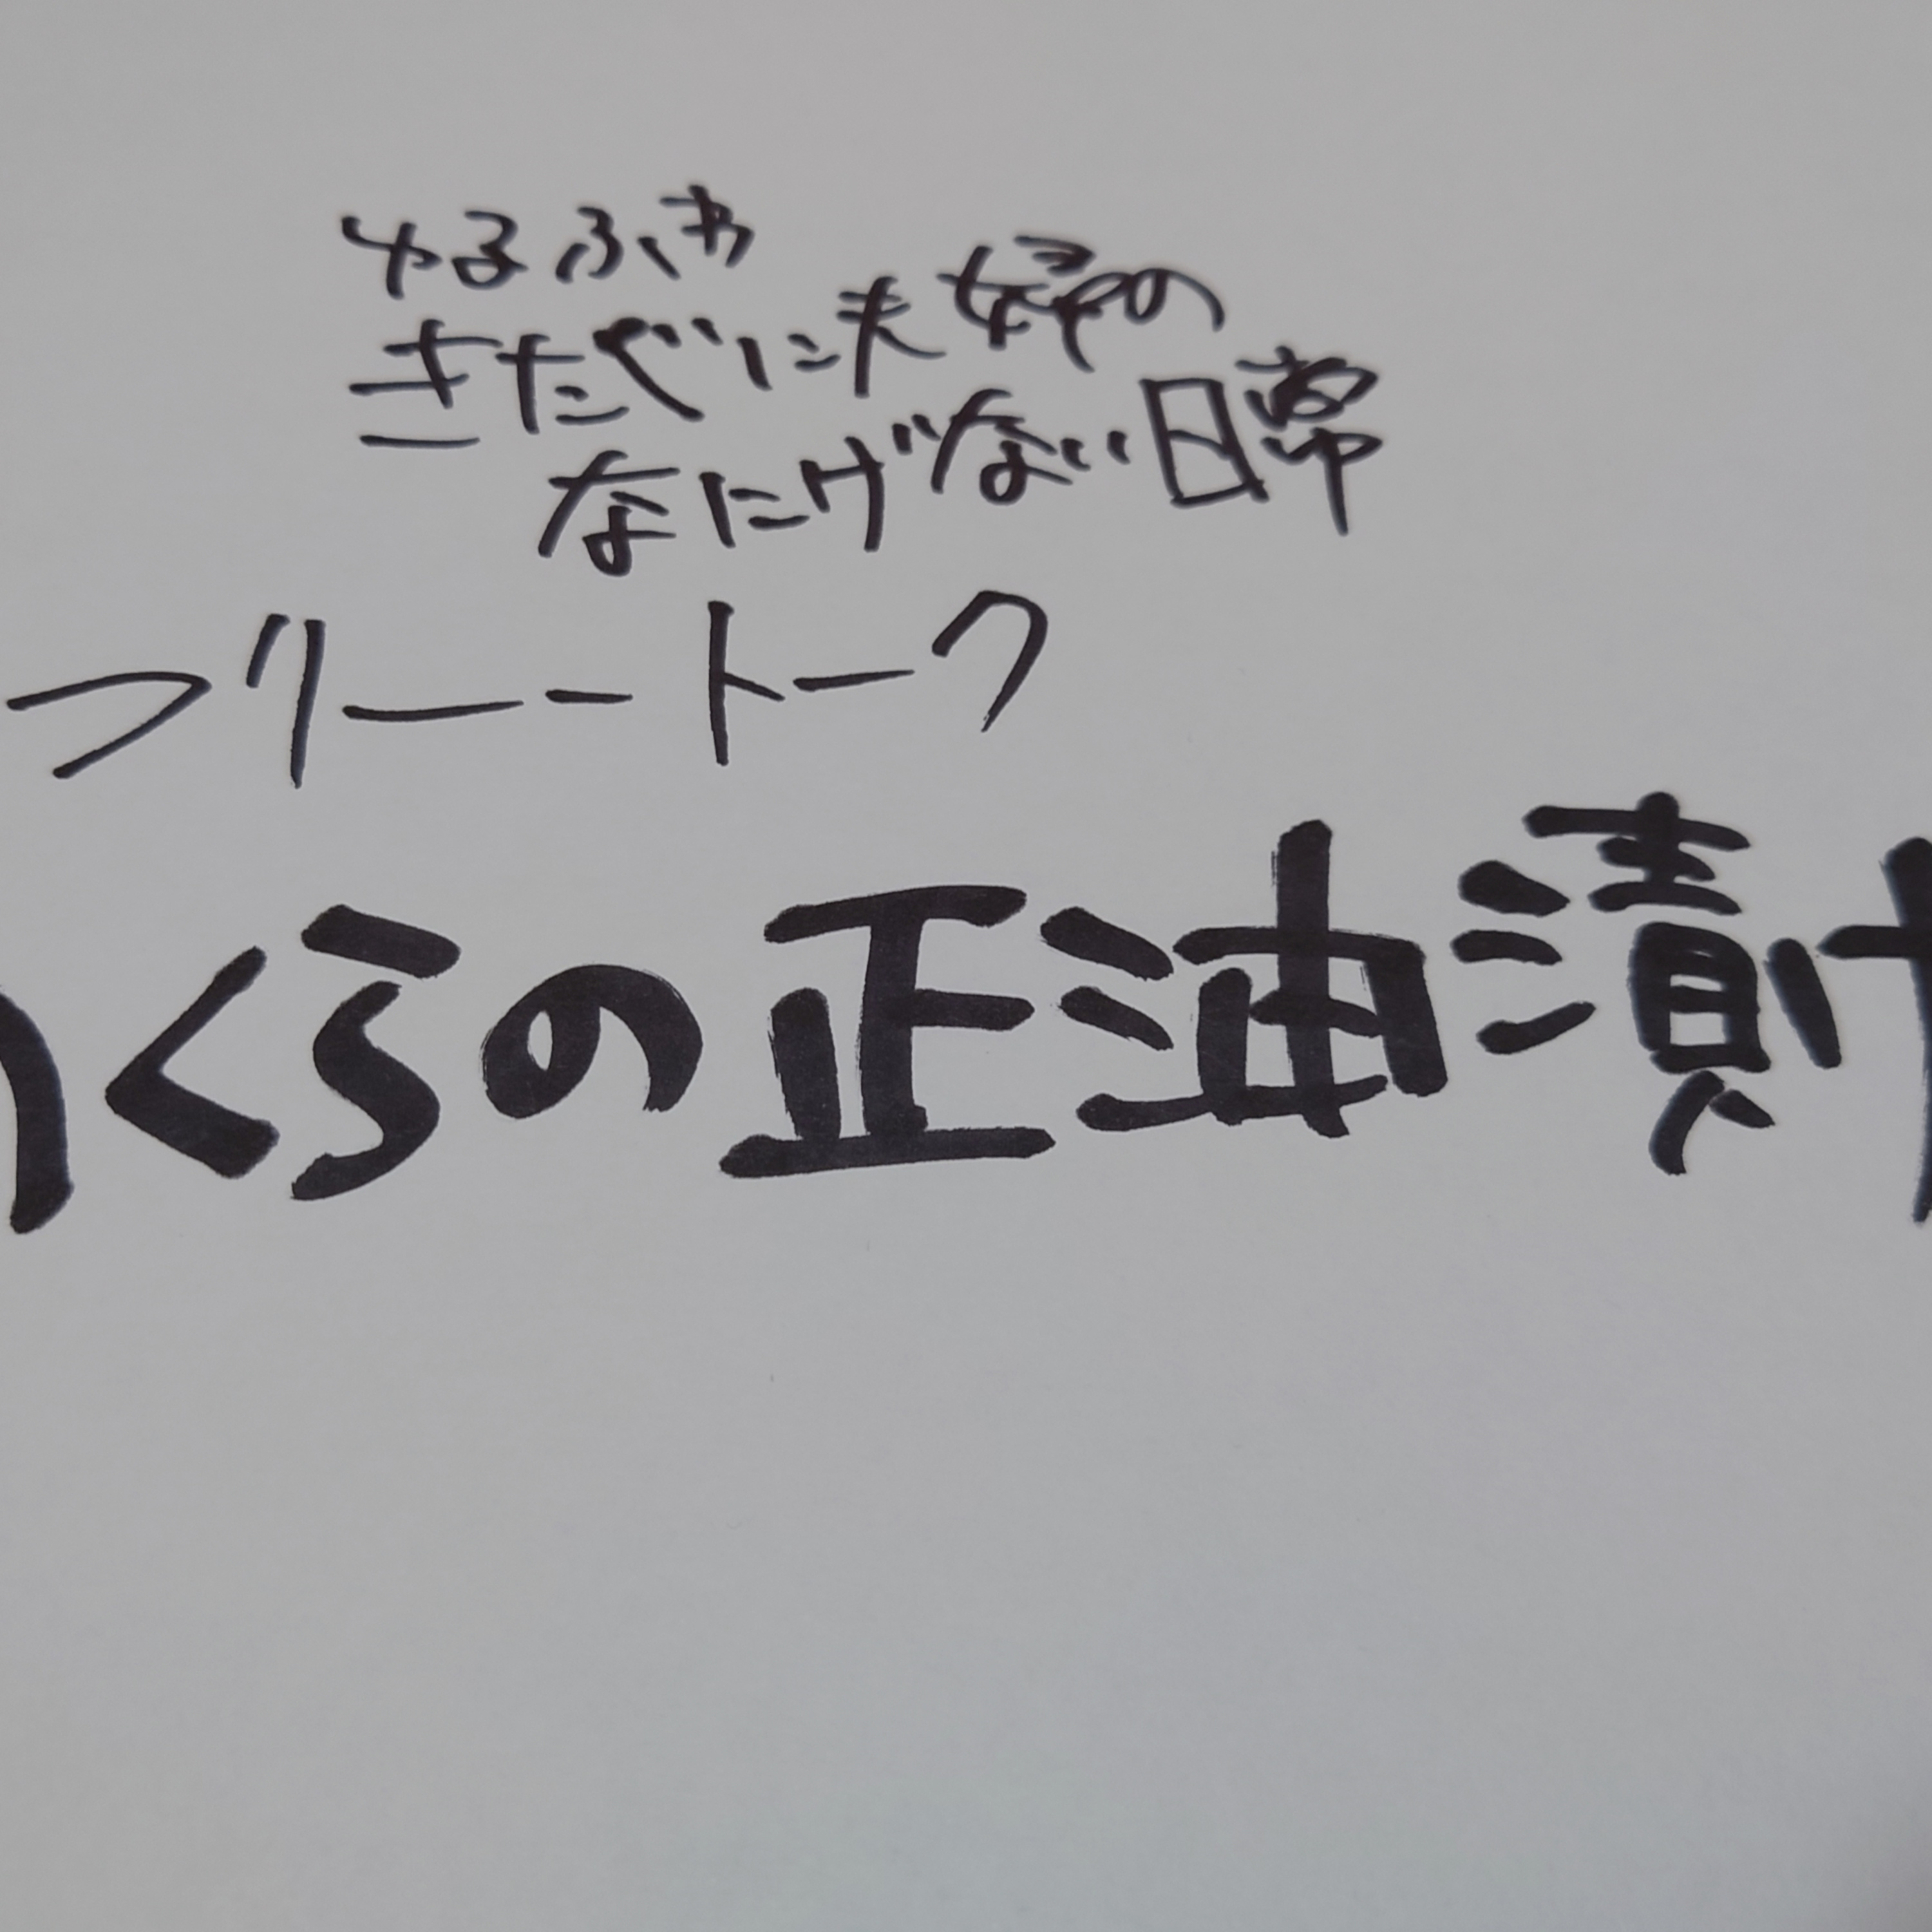 ゆるふわ
きたずに夫婦の
なにげない日常
フリートーク
くらの正油漬け